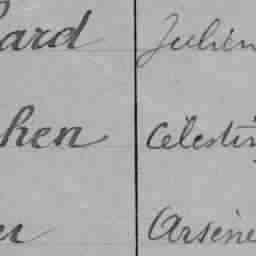 ard Julien
hen Célestin
er Arsène